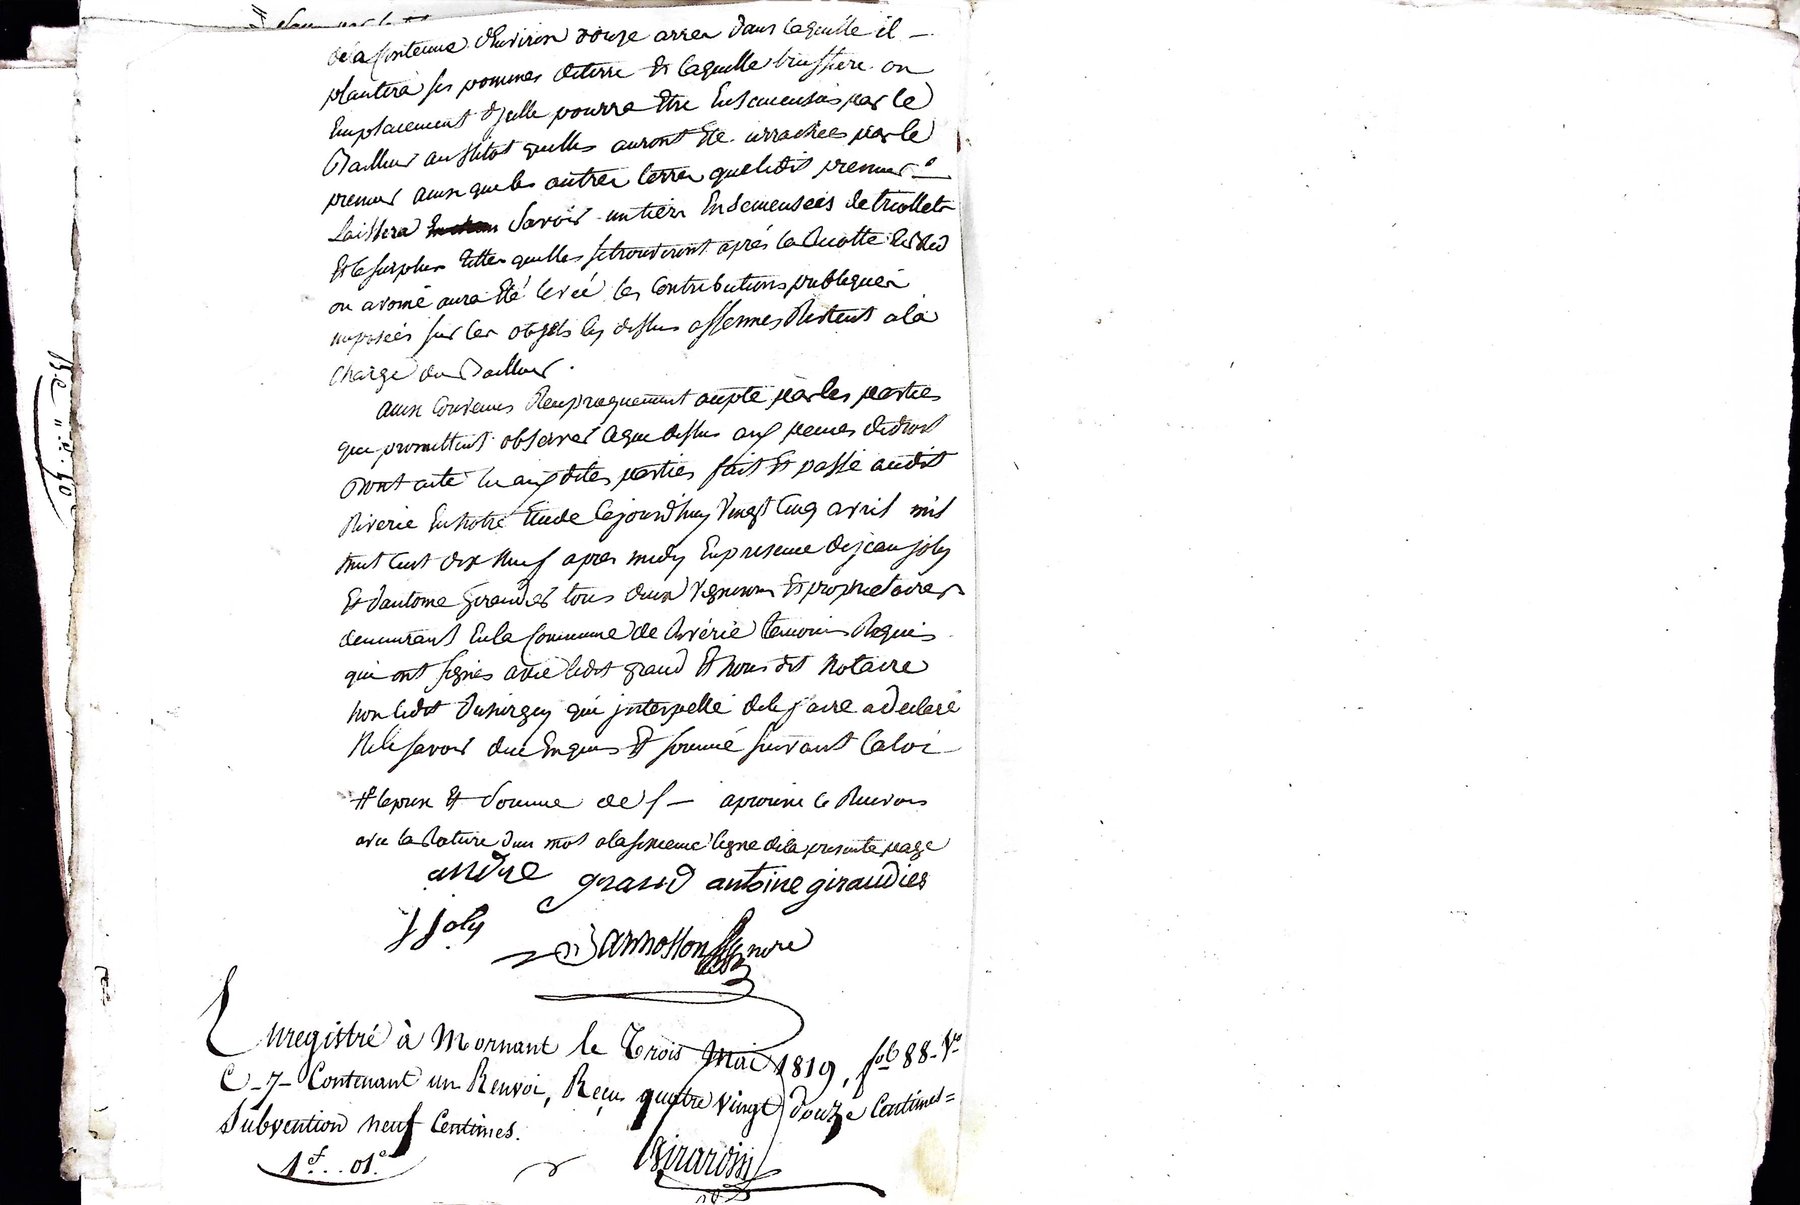 de la Contenue d'Environ douze arres dans laquelle il —
plantera ses pommes deterre Et laquelle brussiere ou
Emplacement d'jcelle pourra Etre Ensemensés par le
Bailleur aussitot quelles auront Eté arrachées par le
preneur ainsi que les autres terres que ledit preneur
Laissera Savoir un tiers Ensemensées de triollets
Et le surplus telles quelles se trouveront aprés la Recolte
ou avoine aura Eté levée les Contributions publiques
imposées sur les objets cy dessus affermés Restent a la
Charge du Bailleur.
ainsi Convenus Reciproquement accepté par les parties
que promettent observer ce que dessus aux peines de droit
Dont acte lu auxdites parties fait Et passé audit
Riverie En notre Etude Cejourd'huy Vingt Cinq avril mil
huit Cent dix Neuf apres midy En presence de jean joly
Et d'antoine Giraudier tous deux Vignerons Et proprietaires
demeurant En la Commune de Riverie temoins Requis
qui ont signés avec ledit grand Et Nous dit Notaire
Non ledit qui jnterpellé de le faire a declaré
Ne le savoir due Enquis Et sommé suivant la loi
# le prix Et Somme de f — aprouvé le Renvois
avec la Rature d'un mot a la sixieme ligne de la presente page
andre grand antoine giraudier
J Joly
Bannosson Nore
Enregistré à Mornant le Trois Mai 1819, fol. 88 - Vo
C - 7 - Contenant un Renvoi, Reçu quatre Vingt douze Centimes =
Subvention neuf Centimes.
1f. .. 01c.
Girardin